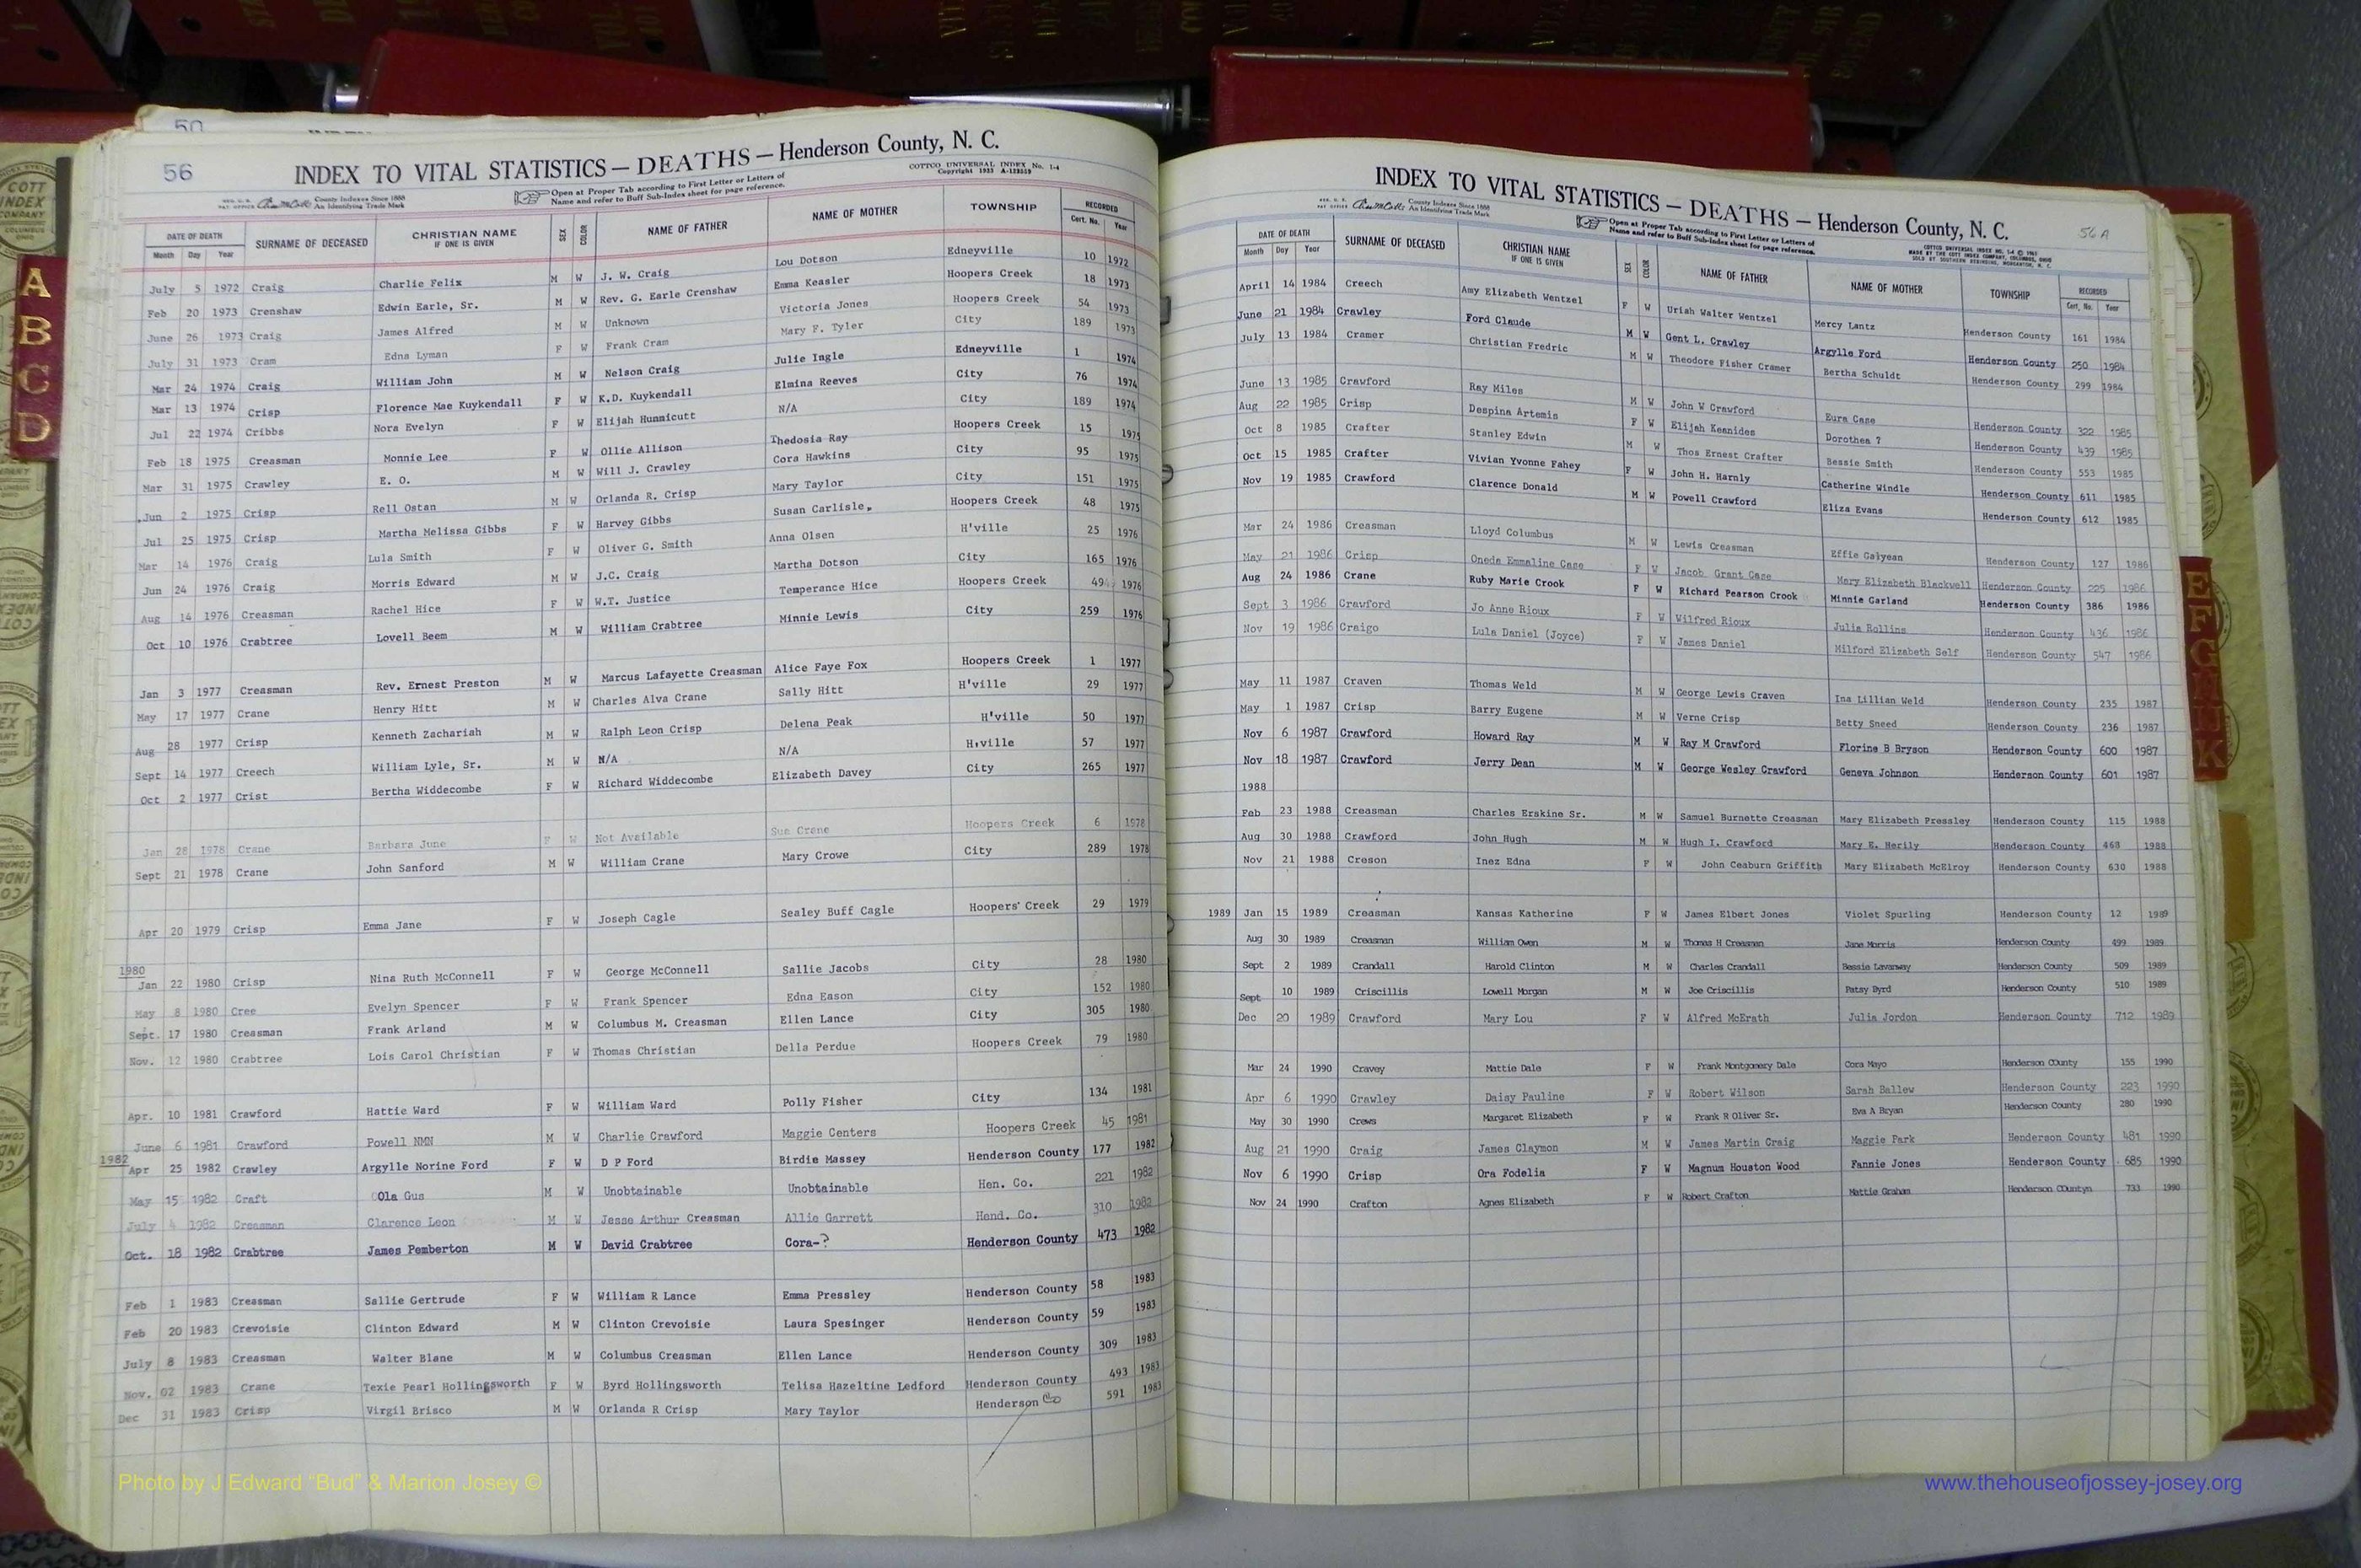 50
56
INDEX TO VITAL STATISTICS — DEATHS — Henderson County, N. C.
COTTCO UNIVERSAL INDEX No. 1-4
Copyright 1935 A-123359
County Indexes Since 1888
An Identifying Trade Mark
Open at Proper Tab according to First Letter or Letters of
Name and refer to Buff Sub-Index sheet for page reference.
DATE OF DEATH SURNAME OF DECEASED CHRISTIAN NAME IF ONE IS GIVEN SEX COLOR NAME OF FATHER NAME OF MOTHER TOWNSHIP RECORDED
Month Day Year Cert. No. Year
July 5 1972 Craig Charlie Felix M W J. W. Craig Lou Dotson Edneyville 10 1972
Feb 20 1973 Crenshaw Edwin Earle, Sr. M W Rev. G. Earle Crenshaw Emma Keasler Hoopers Creek 18 1973
June 26 1973 Craig James Alfred M W Unknown Victoria Jones Hoopers Creek 54 1973
July 31 1973 Cram Edna Lyman F W Frank Cram Mary F. Tyler City 189 1973
Mar 24 1974 Craig William John M W Nelson Craig Julie Ingle Edneyville 1 1974
Mar 13 1974 Crisp Florence Mae Kuykendall F W K.D. Kuykendall Elmina Reeves City 76 1974
Jul 22 1974 Cribbs Nora Evelyn F W Elijah Hunnicutt N/A City 189 1974
Feb 18 1975 Creasman Monnie Lee F W Ollie Allison Thedosia Ray Hoopers Creek 15 1975
Mar 31 1975 Crawley E. O. M W Will J. Crawley Cora Hawkins City 95 1975
Jun 2 1975 Crisp Rell Ostan M W Orlanda R. Crisp Mary Taylor City 151 1975
Jul 25 1975 Crisp Martha Melissa Gibbs F W Harvey Gibbs Susan Carlisle. Hoopers Creek 48 1975
Mar 14 1976 Craig Lula Smith F W Oliver G. Smith Anna Olsen H'ville 25 1976
Jun 24 1976 Craig Morris Edward M W J.C. Craig Martha Dotson City 165 1976
Aug 14 1976 Creasman Rachel Hice F W W.T. Justice Temperance Hice Hoopers Creek 49 1976
Oct 10 1976 Crabtree Lovell Beem M W William Crabtree Minnie Lewis City 259 1976
Jan 3 1977 Creasman Rev. Ernest Preston M W Marcus Lafayette Creasman Alice Faye Fox Hoopers Creek 1 1977
May 17 1977 Crane Henry Hitt M W Charles Alva Crane Sally Hitt H'ville 29 1977
Aug 28 1977 Crisp Kenneth Zachariah M W Ralph Leon Crisp Delena Peak H'ville 50 1977
Sept 14 1977 Creech William Lyle, Sr. M W N/A N/A H.ville 57 1977
Oct 2 1977 Crist Bertha Widdecombe F W Richard Widdecombe Elizabeth Davey City 265 1977
Jan 28 1978 Crane Barbara June F W Not Available Sue Crane Hoopers Creek 6 1978
Sept 21 1978 Crane John Sanford M W William Crane Mary Crowe City 289 1978
Apr 20 1979 Crisp Emma Jane F W Joseph Cagle Sealey Buff Cagle Hoopers' Creek 29 1979
1980
Jan 22 1980 Crisp Nina Ruth McConnell F W George McConnell Sallie Jacobs City 28 1980
May 8 1980 Cree Evelyn Spencer F W Frank Spencer Edna Eason City 152 1980
Sept. 17 1980 Creasman Frank Arland M W Columbus M. Creasman Ellen Lance City 305 1980
Nov. 12 1980 Crabtree Lois Carol Christian F W Thomas Christian Della Perdue Hoopers Creek 79 1980
Apr. 10 1981 Crawford Hattie Ward F W William Ward Polly Fisher City 134 1981
June 6 1981 Crawford Powell NMN M W Charlie Crawford Maggie Centers Hoopers Creek 45 1981
1982
Apr 25 1982 Crawley Argylle Norine Ford F W D P Ford Birdie Massey Henderson County 177 1982
May 15 1982 Craft Ola Gus M W Unobtainable Unobtainable Hen. Co. 221 1982
July 4 1982 Creasman Clarence Leon M W Jesse Arthur Creasman Allie Garrett Hend. Co. 310 1982
Oct. 18 1982 Crabtree James Pemberton M W David Crabtree Cora-? Henderson County 473 1982
Feb 1 1983 Creasman Sallie Gertrude F W William R Lance Emma Pressley Henderson County 58 1983
Feb 20 1983 Crevoisie Clinton Edward M W Clinton Crevoisie Laura Spesinger Henderson County 59 1983
July 8 1983 Creasman Walter Blane M W Columbus Creasman Ellen Lance Henderson County 309 1983
Nov. 02 1983 Crane Texie Pearl Hollingsworth F W Byrd Hollingsworth Telisa Hazeltine Ledford Henderson County 493 1983
Dec 31 1983 Crisp Virgil Brisco M W Orlanda R Crisp Mary Taylor Henderson Co 591 1983
INDEX TO VITAL STATISTICS — DEATHS — Henderson County, N. C.
56 A
County Indexes Since 1888
An Identifying Trade Mark
Open at Proper Tab according to First Letter or Letters of
Name and refer to Buff Sub-Index sheet for page reference.
DATE OF DEATH SURNAME OF DECEASED CHRISTIAN NAME IF ONE IS GIVEN SEX COLOR NAME OF FATHER NAME OF MOTHER TOWNSHIP RECORDED
Month Day Year Cert. No. Year
April 14 1984 Creech Amy Elizabeth Wentzel F W Uriah Walter Wentzel Mercy Lantz Henderson County 161 1984
June 21 1984 Crawley Ford Claude M W Gent L. Crawley Argylle Ford Henderson County 250 1984
July 13 1984 Cramer Christian Fredric M W Theodore Fisher Cramer Bertha Schuldt Henderson County 299 1984
June 13 1985 Crawford Ray Miles M W John W Crawford Eura Case Henderson County 322 1985
Aug 22 1985 Crisp Despina Artemis F W Elijah Keanides Dorothea ? Henderson County 439 1985
Oct 8 1985 Crafter Stanley Edwin M W Thos Ernest Crafter Bessie Smith Henderson County 553 1985
Oct 15 1985 Crafter Vivian Yvonne Fahey F W John H. Harnly Catherine Windle Henderson County 611 1985
Nov 19 1985 Crawford Clarence Donald M W Powell Crawford Eliza Evans Henderson County 612 1985
Mar 24 1986 Creasman Lloyd Columbus M W Lewis Creasman Effie Galyean Henderson County 127 1986
May 21 1986 Crisp Oneda Emmaline Case F W Jacob Grant Case Mary Elizabeth Blackwell Henderson County 225 1986
Aug 24 1986 Crane Ruby Marie Crook F W Richard Pearson Crook Minnie Garland Henderson County 386 1986
Sept 3 1986 Crawford Jo Anne Rioux F W Wilfred Rioux Julia Rollins Henderson County 436 1986
Nov 19 1986 Craigo Lula Daniel (Joyce) F W James Daniel Milford Elizabeth Self Henderson County 547 1986
May 11 1987 Craven Thomas Weld M W George Lewis Craven Ina Lillian Weld Henderson County 235 1987
May 1 1987 Crisp Barry Eugene M W Verne Crisp Betty Sneed Henderson County 236 1987
Nov 6 1987 Crawford Howard Ray M W Ray M Crawford Florine B Bryson Henderson County 600 1987
Nov 18 1987 Crawford Jerry Dean M W George Wesley Crawford Geneva Johnson Henderson County 601 1987
1988
Feb 23 1988 Creasman Charles Erskine Sr. M W Samuel Burnette Creasman Mary Elizabeth Pressley Henderson County 115 1988
Aug 30 1988 Crawford John Hugh M W Hugh I. Crawford Mary E. Herily Henderson County 468 1988
Nov 21 1988 Creson Inez Edna F W John Ceaburn Griffith Mary Elizabeth McElroy Henderson County 630 1988
1989 Jan 15 1989 Creasman Kansas Katherine F W James Elbert Jones Violet Spurling Henderson County 12 1989
Aug 30 1989 Creasman William Owen M W Thomas H Creasman Jane Morris Henderson County 499 1989
Sept 2 1989 Crandall Harold Clinton M W Charles Crandall Bessie Lavanway Henderson County 509 1989
Sept 10 1989 Criscillis Lowell Morgan M W Joe Criscillis Patsy Byrd Henderson County 510 1989
Dec 20 1989 Crawford Mary Lou F W Alfred McErath Julia Jordon Henderson County 712 1989
Mar 24 1990 Cravey Mattie Dale F W Frank Montgomery Dale Cora Mayo Henderson COunty 155 1990
Apr 6 1990 Crawley Daisy Pauline F W Robert Wilson Sarah Ballew Henderson County 223 1990
May 30 1990 Crews Margaret Elizabeth F W Frank R Oliver Sr. Eva A Bryan Henderson County 280 1990
Aug 21 1990 Craig James Claymon M W James Martin Craig Maggie Park Henderson County 481 1990
Nov 6 1990 Crisp Ora Fodelia F W Magnum Houston Wood Fannie Jones Henderson County 685 1990
Nov 24 1990 Crafton Agnes Elizabeth F W Robert Crafton Mattie Graham Henderson COuntyn 733 1990
A
B
C
D
E
F
G
H
K
COTT
INDEX
COMPANY
Photo by J Edward “Bud” & Marion Josey ©
www.thehouseofjossey-josey.org